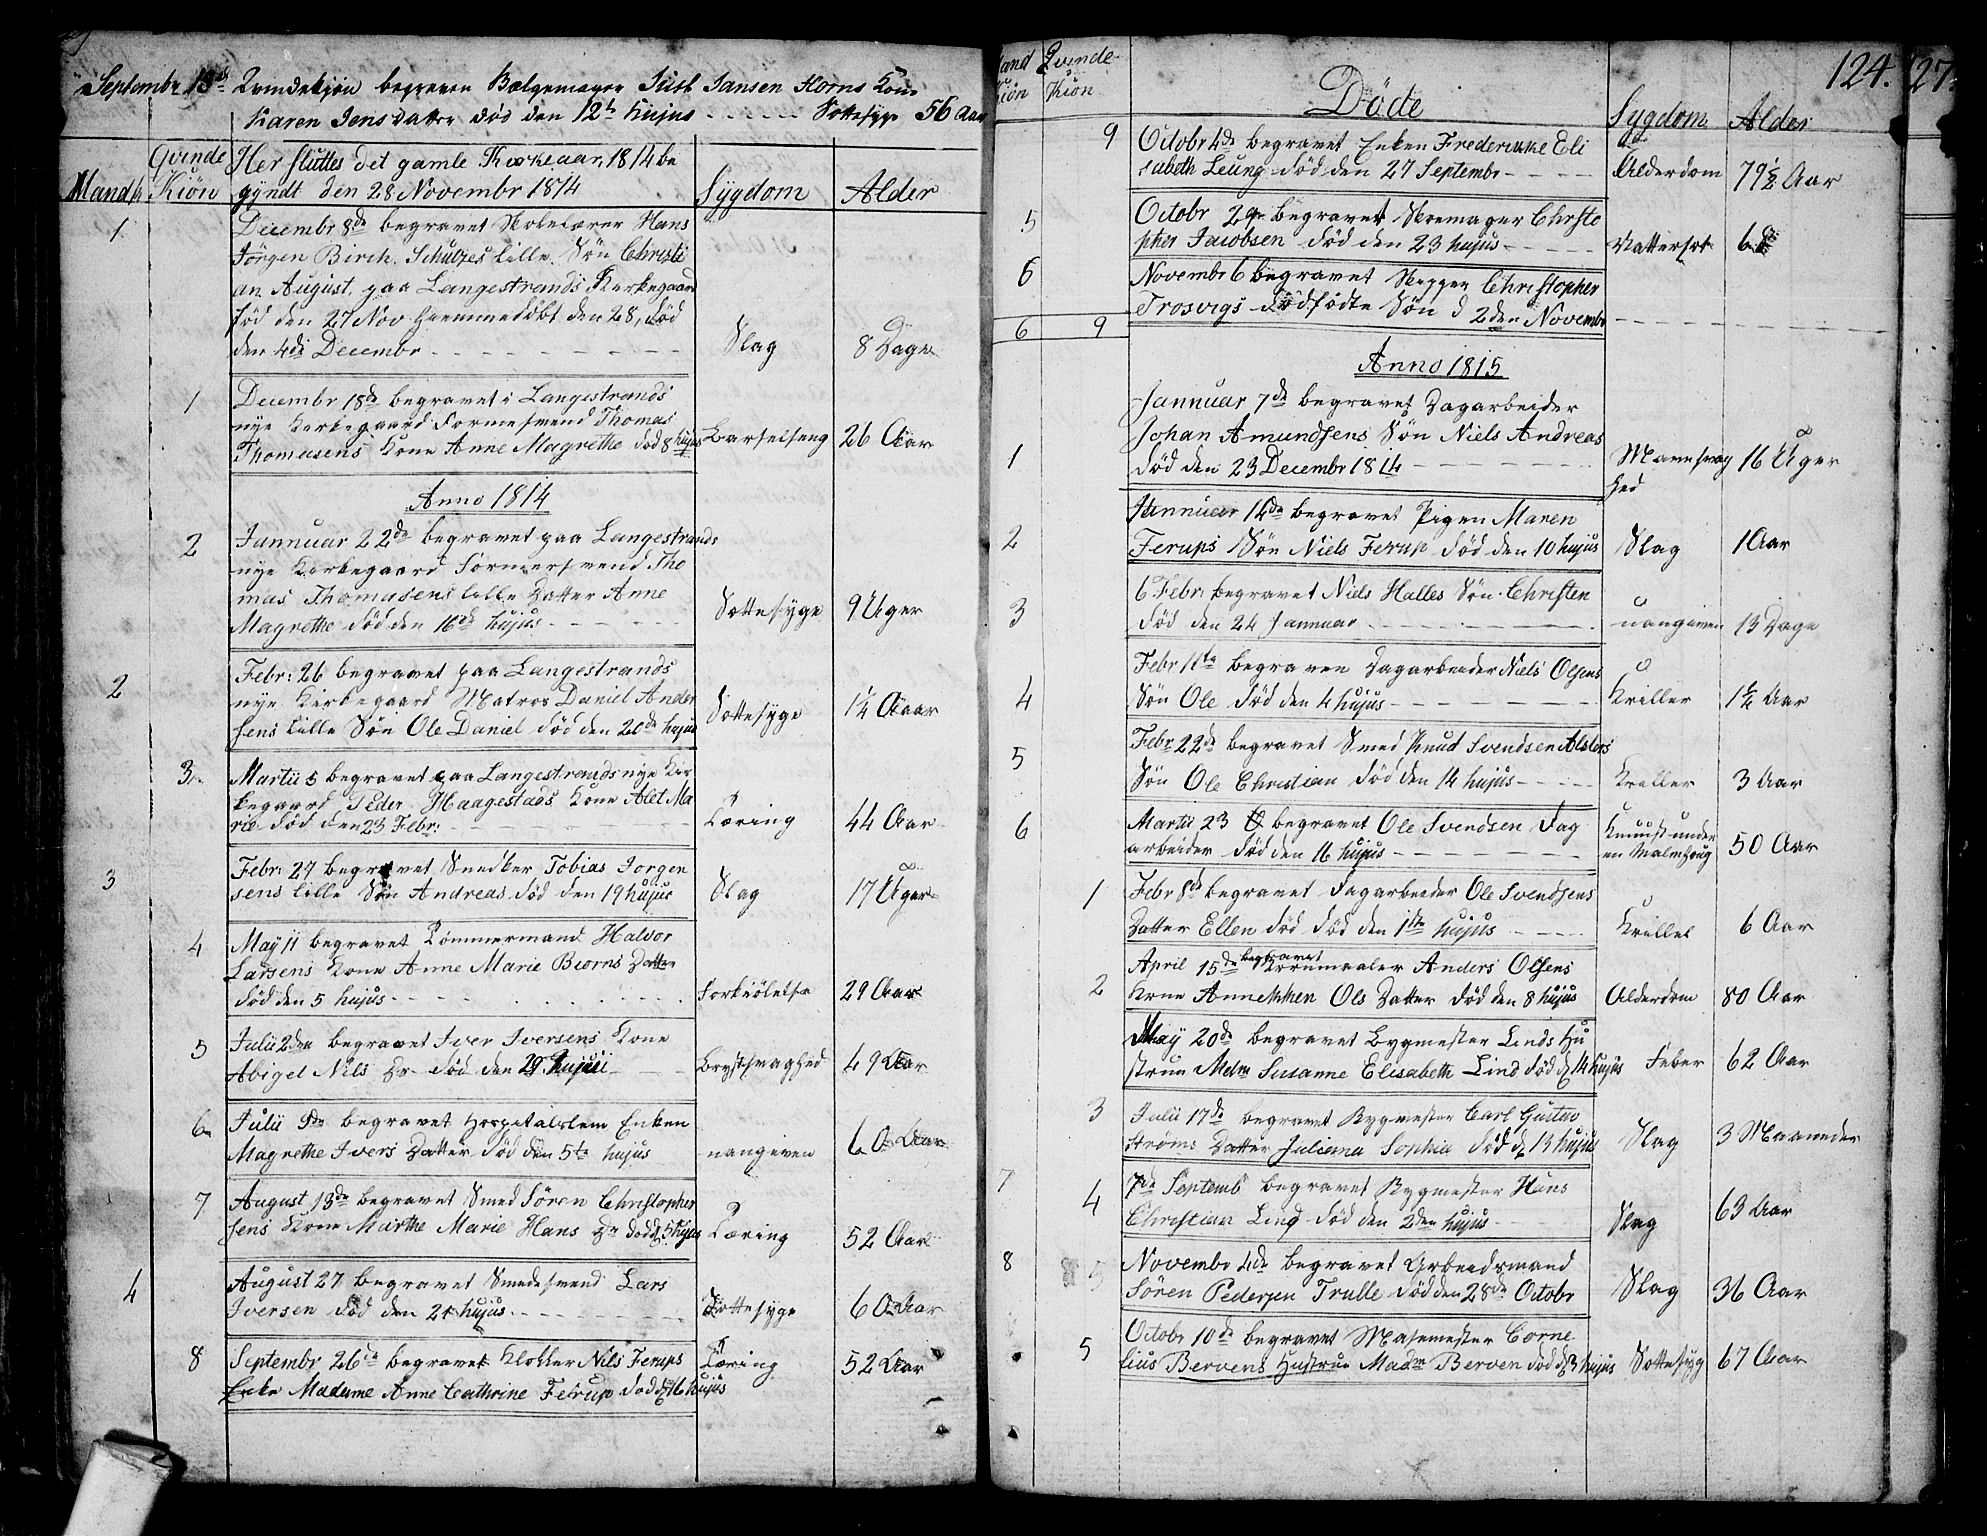 Septembr 13de Qvindekjøn begraven Bælgemager Jens Jansen Horns Kone
Karen Jens Datter død den 12te hujus - - - - - Sottesyge 56 Aar
Mandk
Qvinde Kiön
Her sluttes det gamle Kirkeaar, 1814 be
gyndt den 28 Novembr 1814
Sygdom
Alder
1.
Decembr 8de begravet Skolelærer Hans
Jörgen Birch Schultzes lille Søn Christi
an August paa Langestrands Kirkegaard
född den 27 Nov hiemmedöbt den 28, död
den 4de Decembr - - - - - Slag 8 Dage
1
Decembr 18de begravet i Langestrands
nye Kirkegaard Formersvend Thomas
Thomasens Kone Anne Magrethe död 8 hujus Barselseng 26 Aar
Anno 1814
2
Januuar 22de begravet paa Langestrands
nye Kirkegaard Formersvend Tho
mas Thomasens lille Datter Anne
Magrethe död den 16de hujus - - - Sottesyge 9 Uger
2
Febr: 26 begravet paa Langestrands
nye Kirkegaard Matros Daniel Ander
sens lille Søn Ole Daniel död den 20de hujus Sottesyge 1¼ Aar
3
Martii 5 begravet paa Langestrands nye Kir
kegaard Peder Haagestads Kone Alet Ma
rie död den 23 Febr: - - - Tæring 44 Aar
3
Febr: 27 begravet Snedker Tobias Jorgen
sens lille Søn Andreas död den 19 hujus Slag 17 Uger
4
May 11 begravet Tömmermand Halvor
Larsens Kone Anne Marie Biørns Datter
död den 5 hujus - - - Forkiölelse 29 Aar
5
Julii 2den begravet Iver Iversens Kone
Abigel Nils Dr död den 29 Junii - - - Brystsvaghed 49 Aar
6
Julii 9de begravet Hospitalslem Enken
Magrethe Ivers Datter död den 5te hujus uangiven 60 Aar
7
August 13de begravet Smed Sören Christopher
sens Kone Marthe Marie Hans Dr död d 5 hujus Tæring 52 Aar
4
August 27 begravet Smedesvend Lars
Iversen död den 21 hujus - - - Sottesyge 60 Aar
8
Septembr 26de begravet Klokker Nils Ferups
Enke Madame Anne Cathrine Ferup död d 16 hujus Tæring 52 Aar
Mand Kiön
Qvinde Kiön
Döde
Sygdom
Alder
124.
127
9
Octobr 4de begravet Enken Frederikke Eli
sabeth Leung död den 27 Septembr - - - Alderdom 79½ Aar
5
Octobr 29 begravet Skomager Christo
pher Jacobsen död den 23 hujus - - - Vattersot 68
6
Novembr 6 begravet Skipper Christopher
Trosvigs dødfødte Søn d 2den Novembr
6 9
Anno 1815
1
Jannuar 7de begravet Dagarbeider
Johan Amundsens Søn Niels Andreas
död den 23 Decembr 1814 - - - Mavesvag
hed 16 Uger
2
Jannuar 14de begravet Pigen Maren
Ferups Søn Niels Ferup död den 10 hujus Slag 1 Aar
3
6 Febr: begravet Niels Halles Søn Christen
död den 24 Jannuar - - - uangiven 13 Dage
4
Febr 11te begraven Dagarbeider Niels Olsens
Søn Ole död den 4 hujus - - - Kriller 1½ Aar
5
Febr 22de begravet Smed Knud Svendsen Alsters
Søn Ole Christian död den 14 hujus - - - Kriller 3 Aar
6
Martii 23 begravet Ole Svendsen Dag
arbeider död den 16 hujus - - - Knuust under
en Malmhoug 50 Aar
1
Febr 8de begravet Dagarbeider Ole Svendsens
Datter Ellen död död den 1ste hujus - - - Kriller 6 Aar
2
April 15de begravet Kornmaaler Anders Olsens
Kone Annekken Ols Datter död den 8 hujus Alderdom 80 Aar
May 20de begravet Bygmester Linds Hu
strue Mdm Susanne Elisabeth Lind död d 14 hujus Feber 62 Aar
3
Julii 17de begravet Bygmester Carl Gustav
Ströms Datter Julianna Sophia död d 13 hujus Slag 3 Maaneder
7
4
7de Septemb begravet Bygmester Hans
Christian Lind död den 2den hujus - Slag 63 Aar
8
5
Novembr 4de begravet Arbeidsmand
Sören Pedersen Trulle död den 28de Octobr Slag 36 Aar
5
Octobr 10de begravet Masemester Corne
lius Bervens Hustrue Madm Berven död d 3 hujus Sottesyg 67 Aar